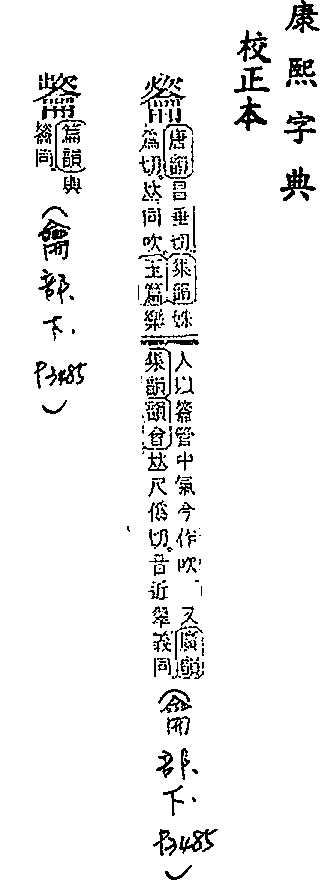 康熙字典
校正本
唐韻昌垂切集韻姝
爲切𠀤同吹玉篇樂
人以籥管中氣今作吹 又廣韻
集韻韻會𠀤尺僞切音近翠義同
(龠部下.P3485)
篇韻與
同
(龠部下.P3485)